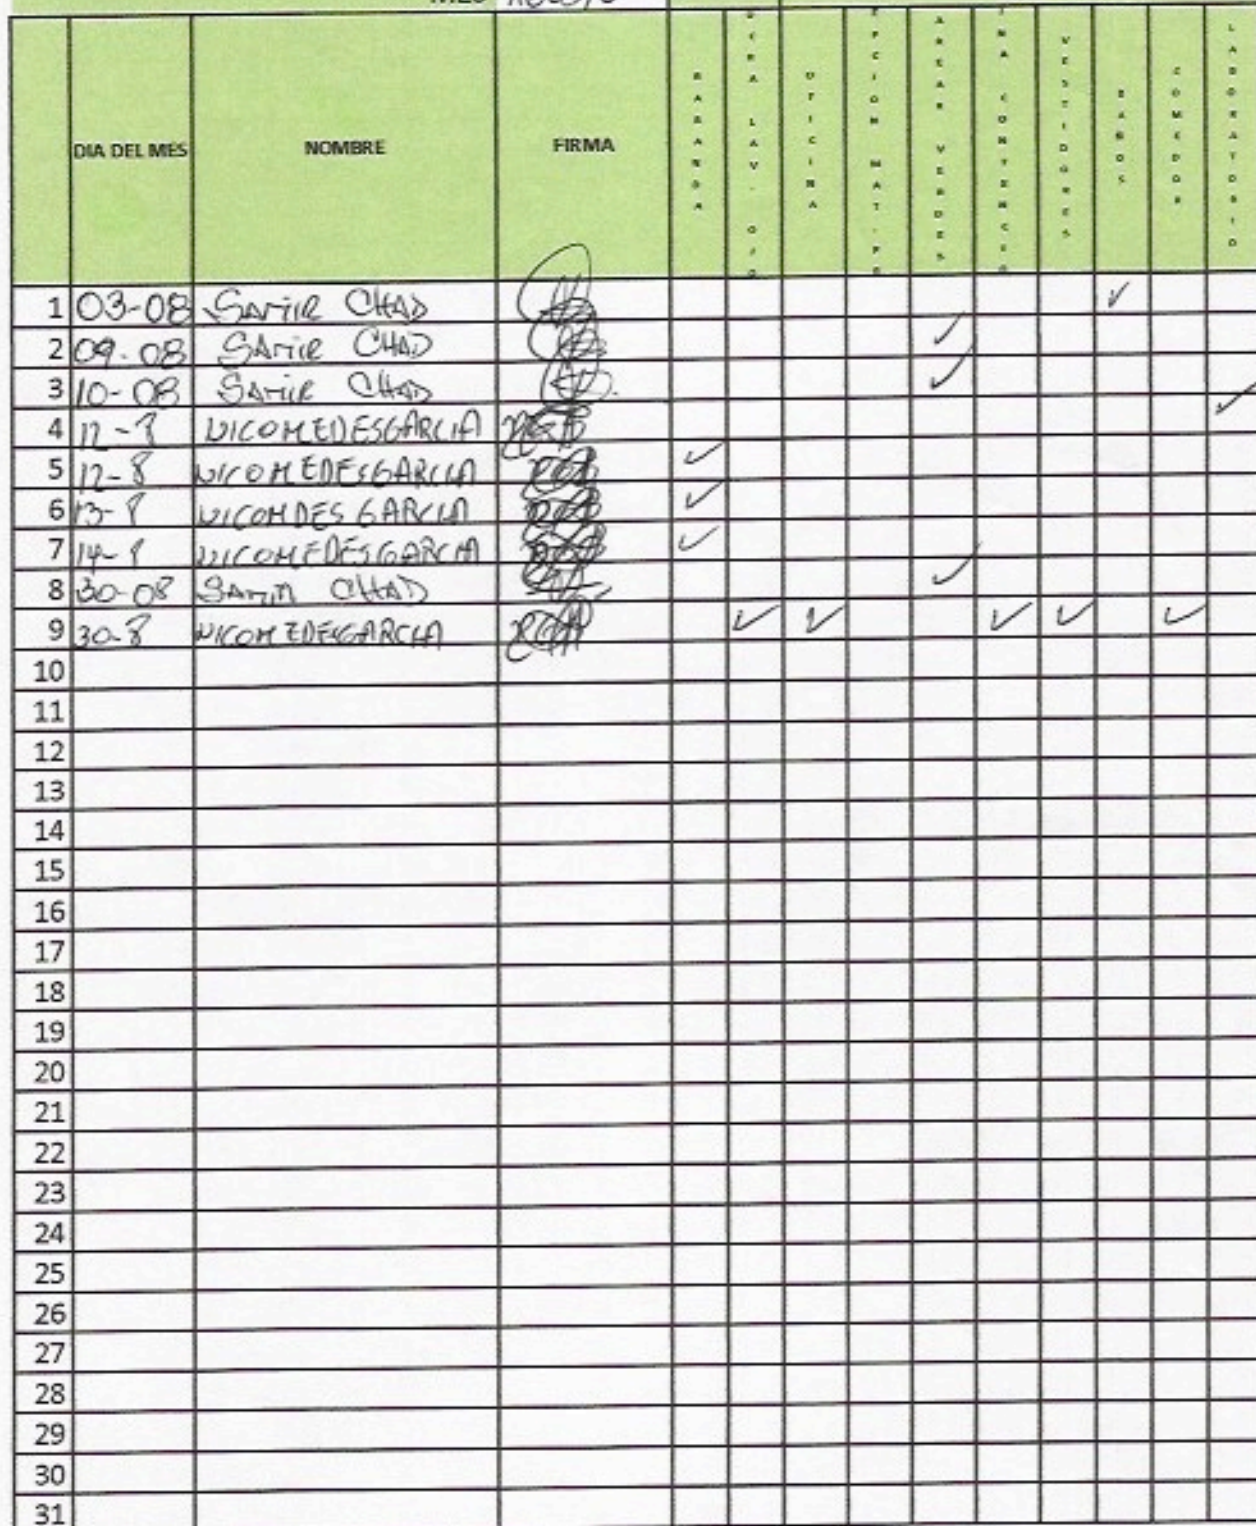 MES AGOSTO
DIA DEL MES NOMBRE FIRMA BARANDA LAV. OJO OFICINA MAT. VERDES VESTIDORES BAÑOS COMEDOR LABORATORIO
1 03-08 SAMIR CHAD ✓
2 09-08 SAMIR CHAD ✓
3 10-08 SAMIR CHAD ✓
4 12-8 NICOMEDES GARCIA ✓
5 12-8 NICOMEDES GARCIA ✓
6 13-8 NICOMDES GARCIA ✓
7 14-8 NICOMEDES GARCIA ✓
8 30-08 SAMIR CHAD ✓
9 30-8 NICOMEDES GARCIA ✓ ✓ ✓ ✓ ✓
10
11
12
13
14
15
16
17
18
19
20
21
22
23
24
25
26
27
28
29
30
31